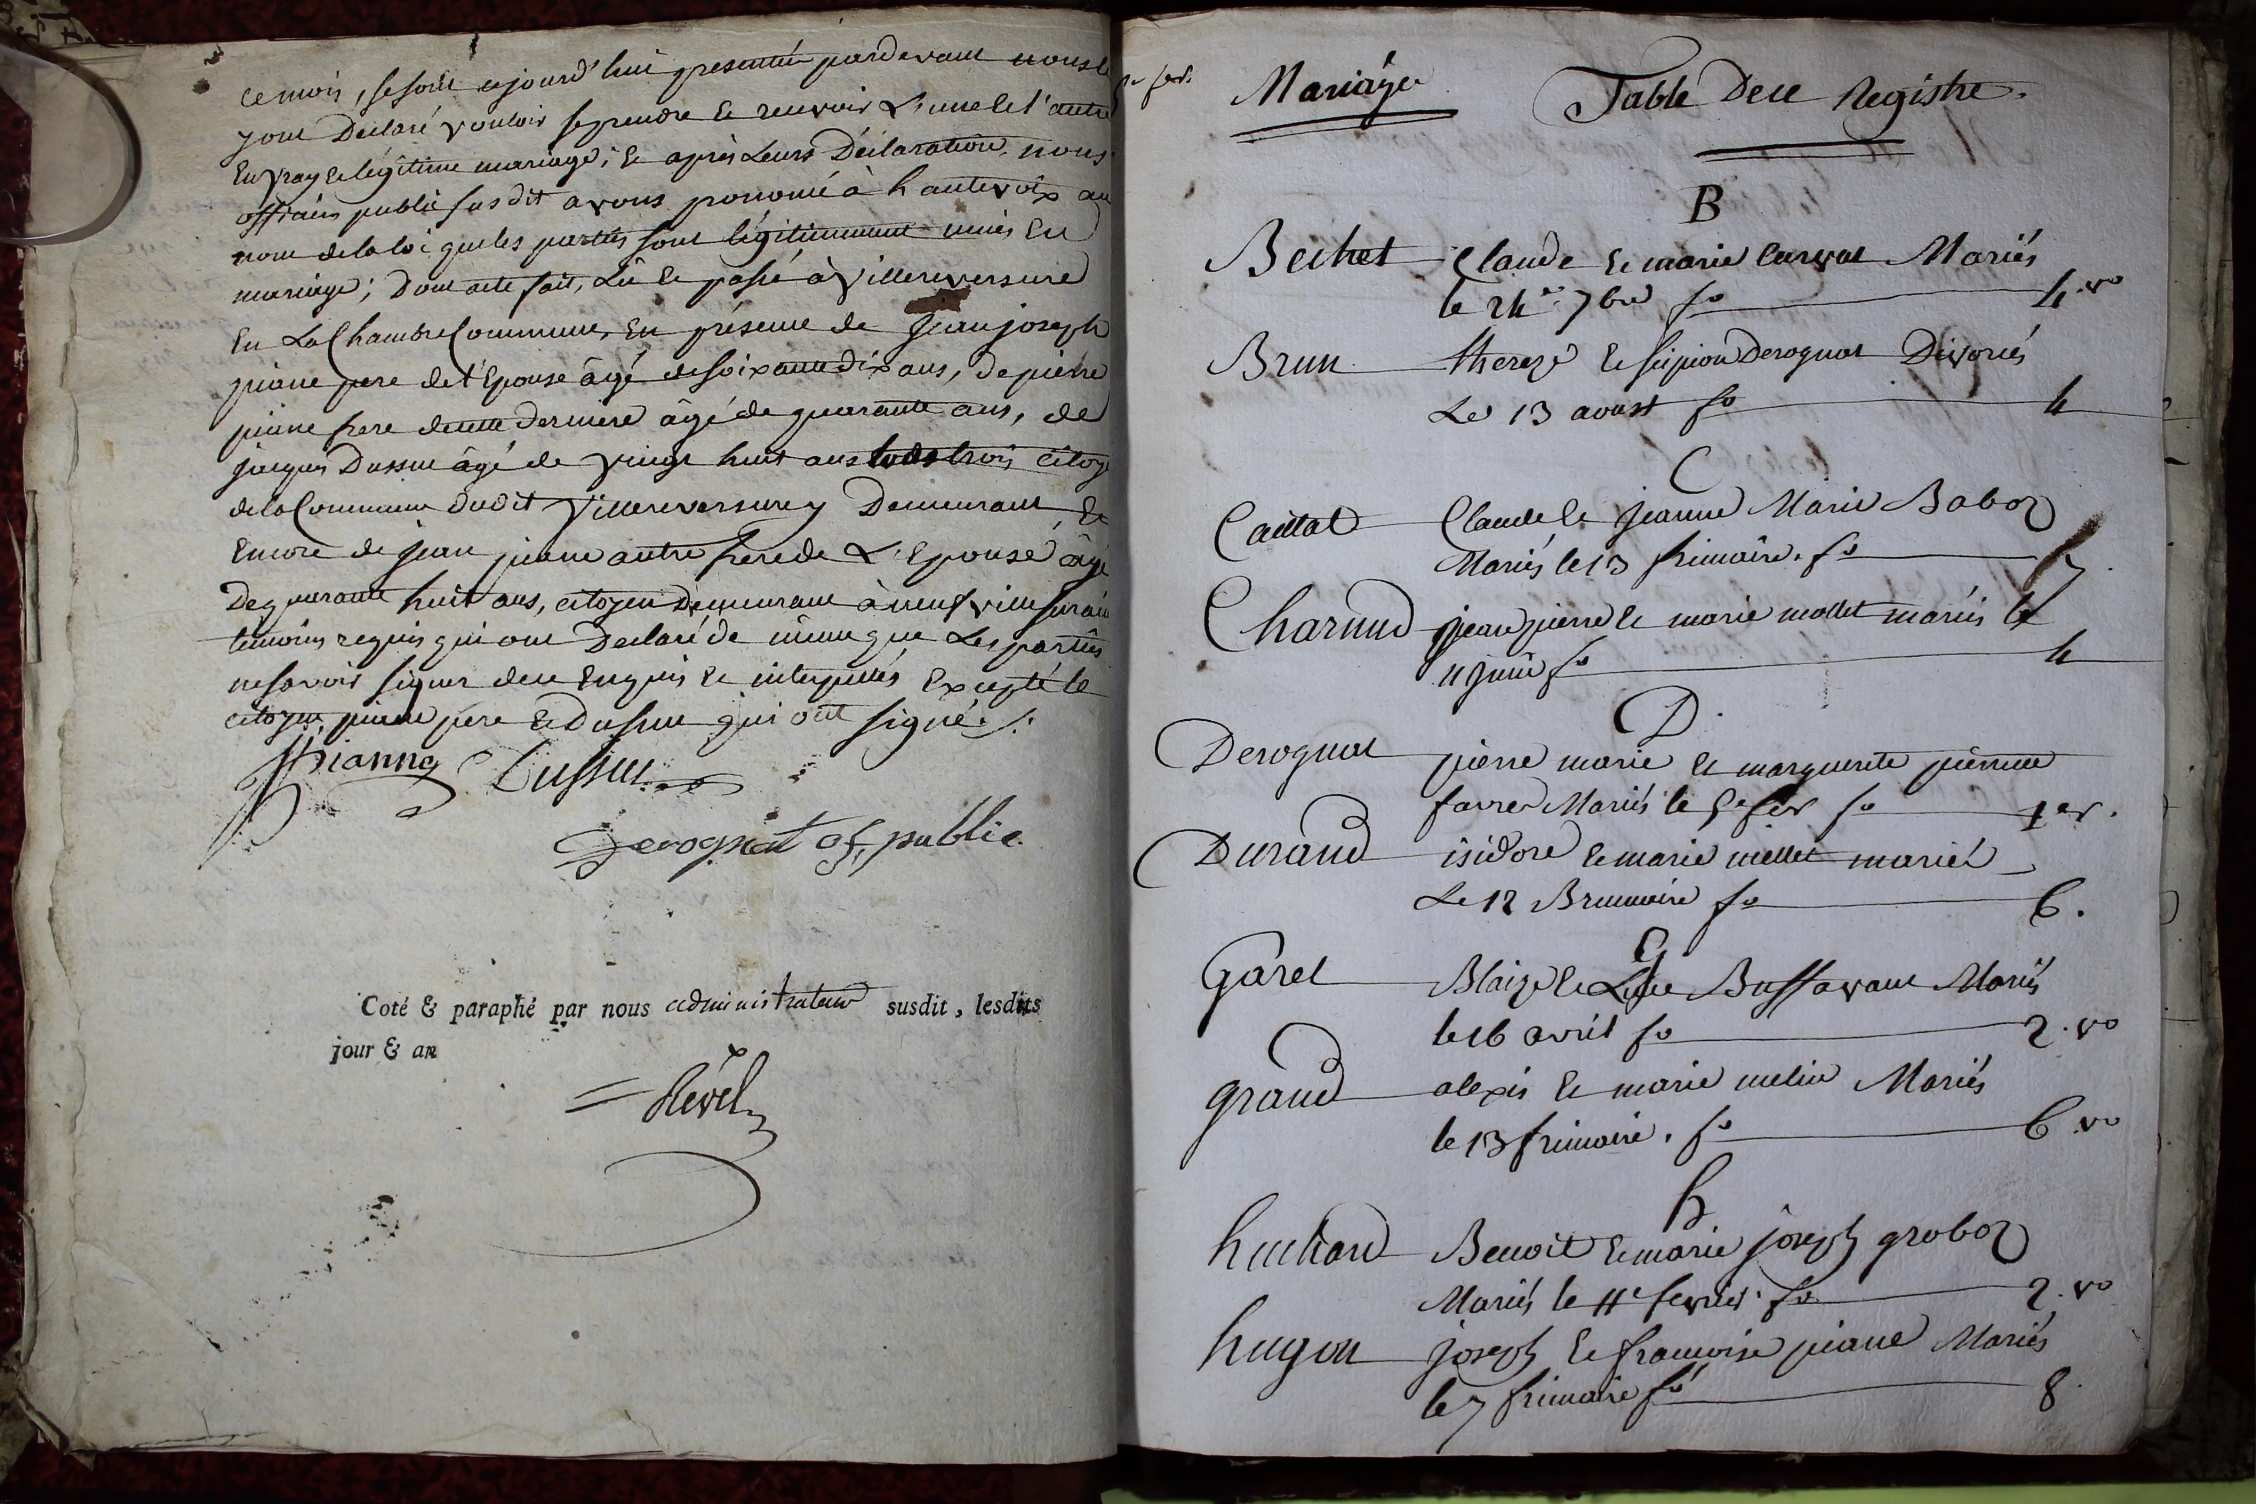 ce mois, se sont aujourd'hui presentés pardevant nous le
y ont Declaré vouloir se prendre & recevoir L'une & l'autre
En vray & légitime mariage; & après Leurs Déclaration, nous
officier public susdit avons prononcé à hautevoix au
nom de la loi que les parties sont légitimement unies En
mariage; Dont acte fait, Lû & passé à Villereversure
En La Chambre Commune, En présence de Jean joseph
piane pere de l'Epouse âgé de soixante dix ans, de pierre
piane frere de cette derniere âgé de quarante ans, de
jacques Dussuc âgé de vingt huit ans tous trois citoy
de la Commune dudit Villereversure y Demeurant &
Encore de jean piane autre frere de L'Epouse âgé
De quarante huit ans, citoyen Demeurant à neufville sur ain
témoins requis qui ont Declaré de même que Les parties
ne savoir signer de ce Enquis & interpellés Excepté le
citoyen piane pere & Dussuc qui ont signé ./.
Pianna Dussuc
Derognat of. public
Coté & paraphé par nous administrateur susdit, lesdits
jour & an
Révél
Mariage Table De ce Registre.
B
Bechet Claude & marie Mariés
le 24e 7bre fo 4. vo
Brun thereze & scipion Derognat Divorcés
Le 13 aoust fo 4
C
Cattat Claude & Jeanne Marie Baboz
Mariés le 13 frimaire. fo 7
Charnud jean pierre & marie mollet mariés le
11 juin fo 4
D.
Derognat pierre marie & marguerite pierrette
favre Mariés le 5e fer fo 1er.
Durand isidore & marie millet mariés
Le 12 Brumaire fo 6.
G
Garel Blaize & Luce Buffavant Mariés
le 16 avril fo 2. vo
grand alexis & marie melin Mariés
le 13 frimaire. fo 6 vo
h
huchard Benoit & marie joseph groboz
Mariés le 11e fevrier fo 2. vo
hugon joseph & francoise piane Mariés
le 7 frimaire fo 8